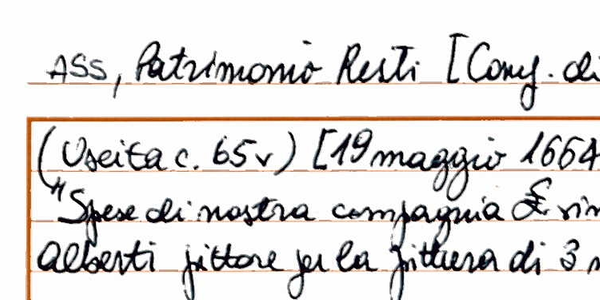 ASS, Patrimonio Resti [Comp. di
(Uscita c. 65v) [19 maggio 1664
"Spese di nostra compagnia £
Alberti pittore per la pittura di 3